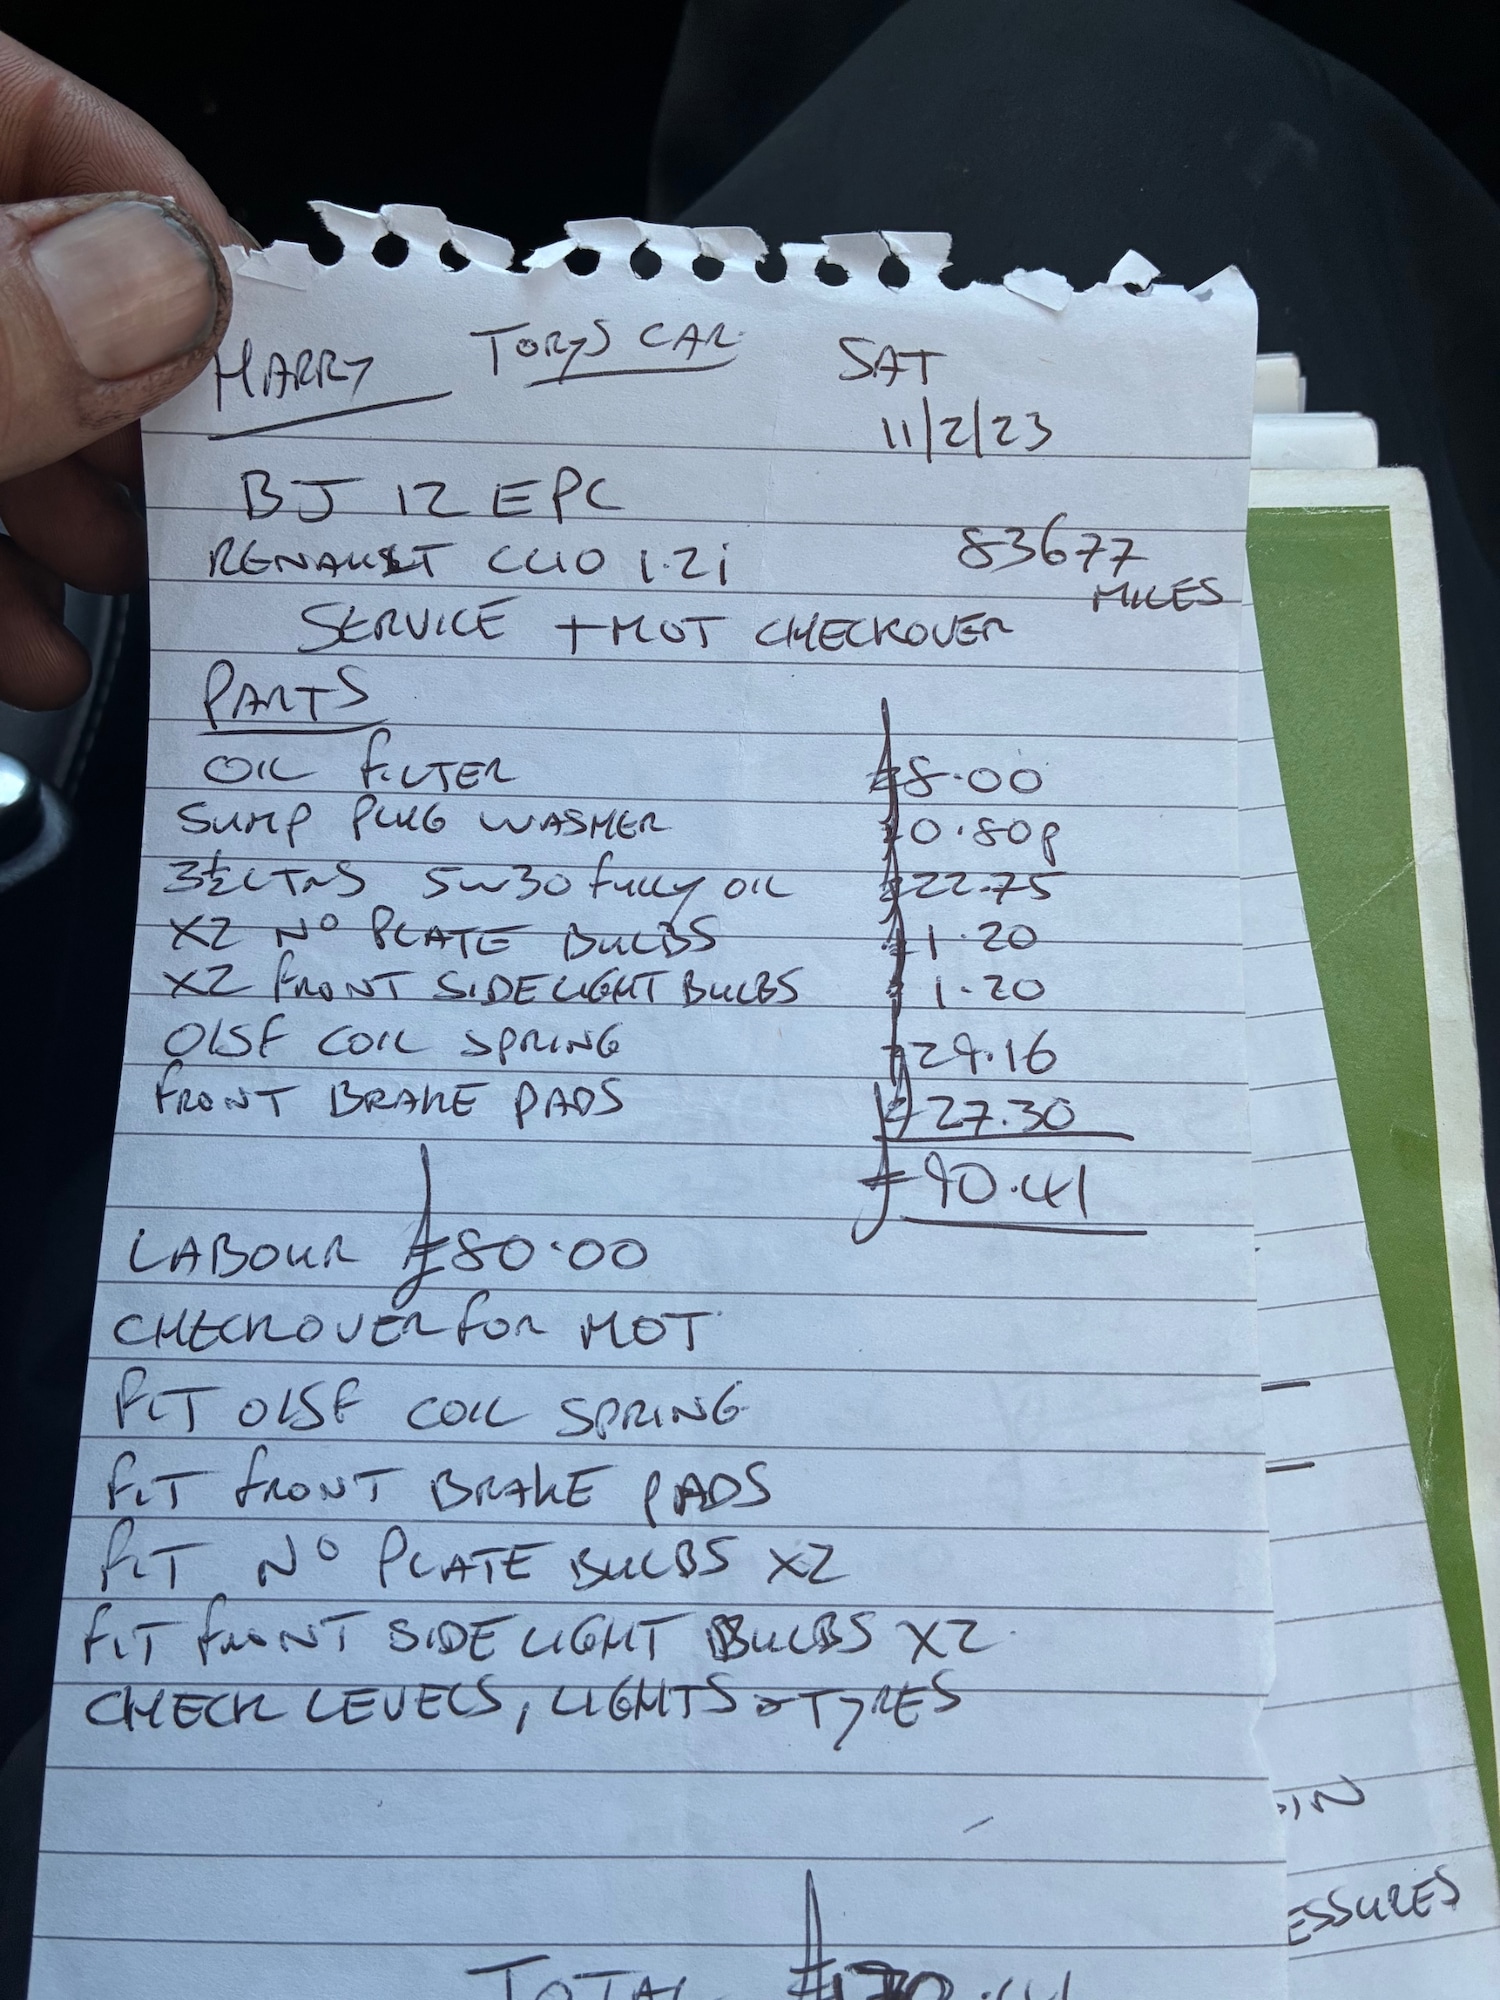 HARRY TORYS CAR SAT
11/2/23
BJ 12 EPC
RENAULT CLIO 1.2i 83677
MILES
SERVICE + MOT CHECKOVER
PARTS
OIL FILTER £8.00
SUMP PLUG WASHER £0.80p
3½ LTRS 5W30 FULLY OIL £22.75
X2 Nº PLATE BULBS £1.20
X2 FRONT SIDELIGHT BULBS £1.20
O/S/F COIL SPRING £29.16
FRONT BRAKE PADS £27.30
£90.41
LABOUR £80.00
CHECKOVER FOR MOT
FIT O/S/F COIL SPRING
FIT FRONT BRAKE PADS
FIT Nº PLATE BULBS X2
FIT FRONT SIDE LIGHT BULBS X2
CHECK LEVELS, LIGHTS & TYRES
ESSURES
TOTAL £170.41